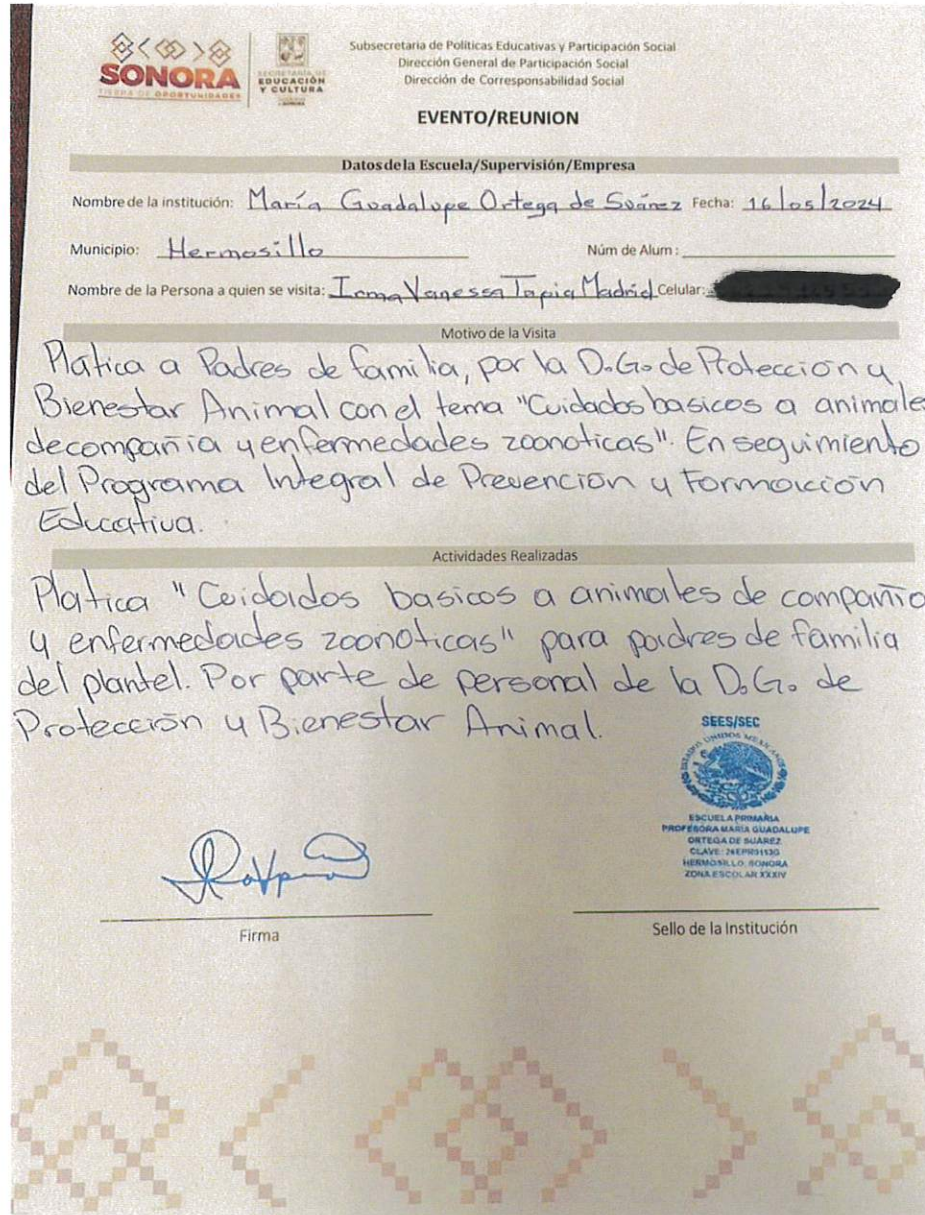 SONORA
TIERRA DE OPORTUNIDADES
SECRETARÍA DE
EDUCACIÓN
Y CULTURA
Subsecretaria de Políticas Educativas y Participación Social
Dirección General de Participación Social
Dirección de Corresponsabilidad Social
EVENTO/REUNION
Datos de la Escuela/Supervisión/Empresa
Nombre de la institución: María Guadalupe Ortega de Suárez Fecha: 16/05/2024
Municipio: Hermosillo Núm de Alum :
Nombre de la Persona a quien se visita: Irma Vanessa Tapia Madrid Celular:
Motivo de la Visita
Platica a Padres de familia, por la D.G. de Protección y
Bienestar Animal con el tema "Cuidados basicos a animales
de compañia y enfermedades zoonoticas". En seguimiento
del Programa Integral de Prevención y Formación
Educativa.
Actividades Realizadas
Platica "Cuidados basicos a animales de compañia
y enfermedades zoonoticas" para padres de familia
del plantel. Por parte de personal de la D.G. de
Protección y Bienestar Animal.
SEES/SEC
ESTADOS UNIDOS MEXICANOS
ESCUELA PRIMARIA
PROFESORA MARIA GUADALUPE
ORTEGA DE SUAREZ
HERMOSILLO, SONORA
ZONA ESCOLAR XXXIV
Firma
Sello de la Institución